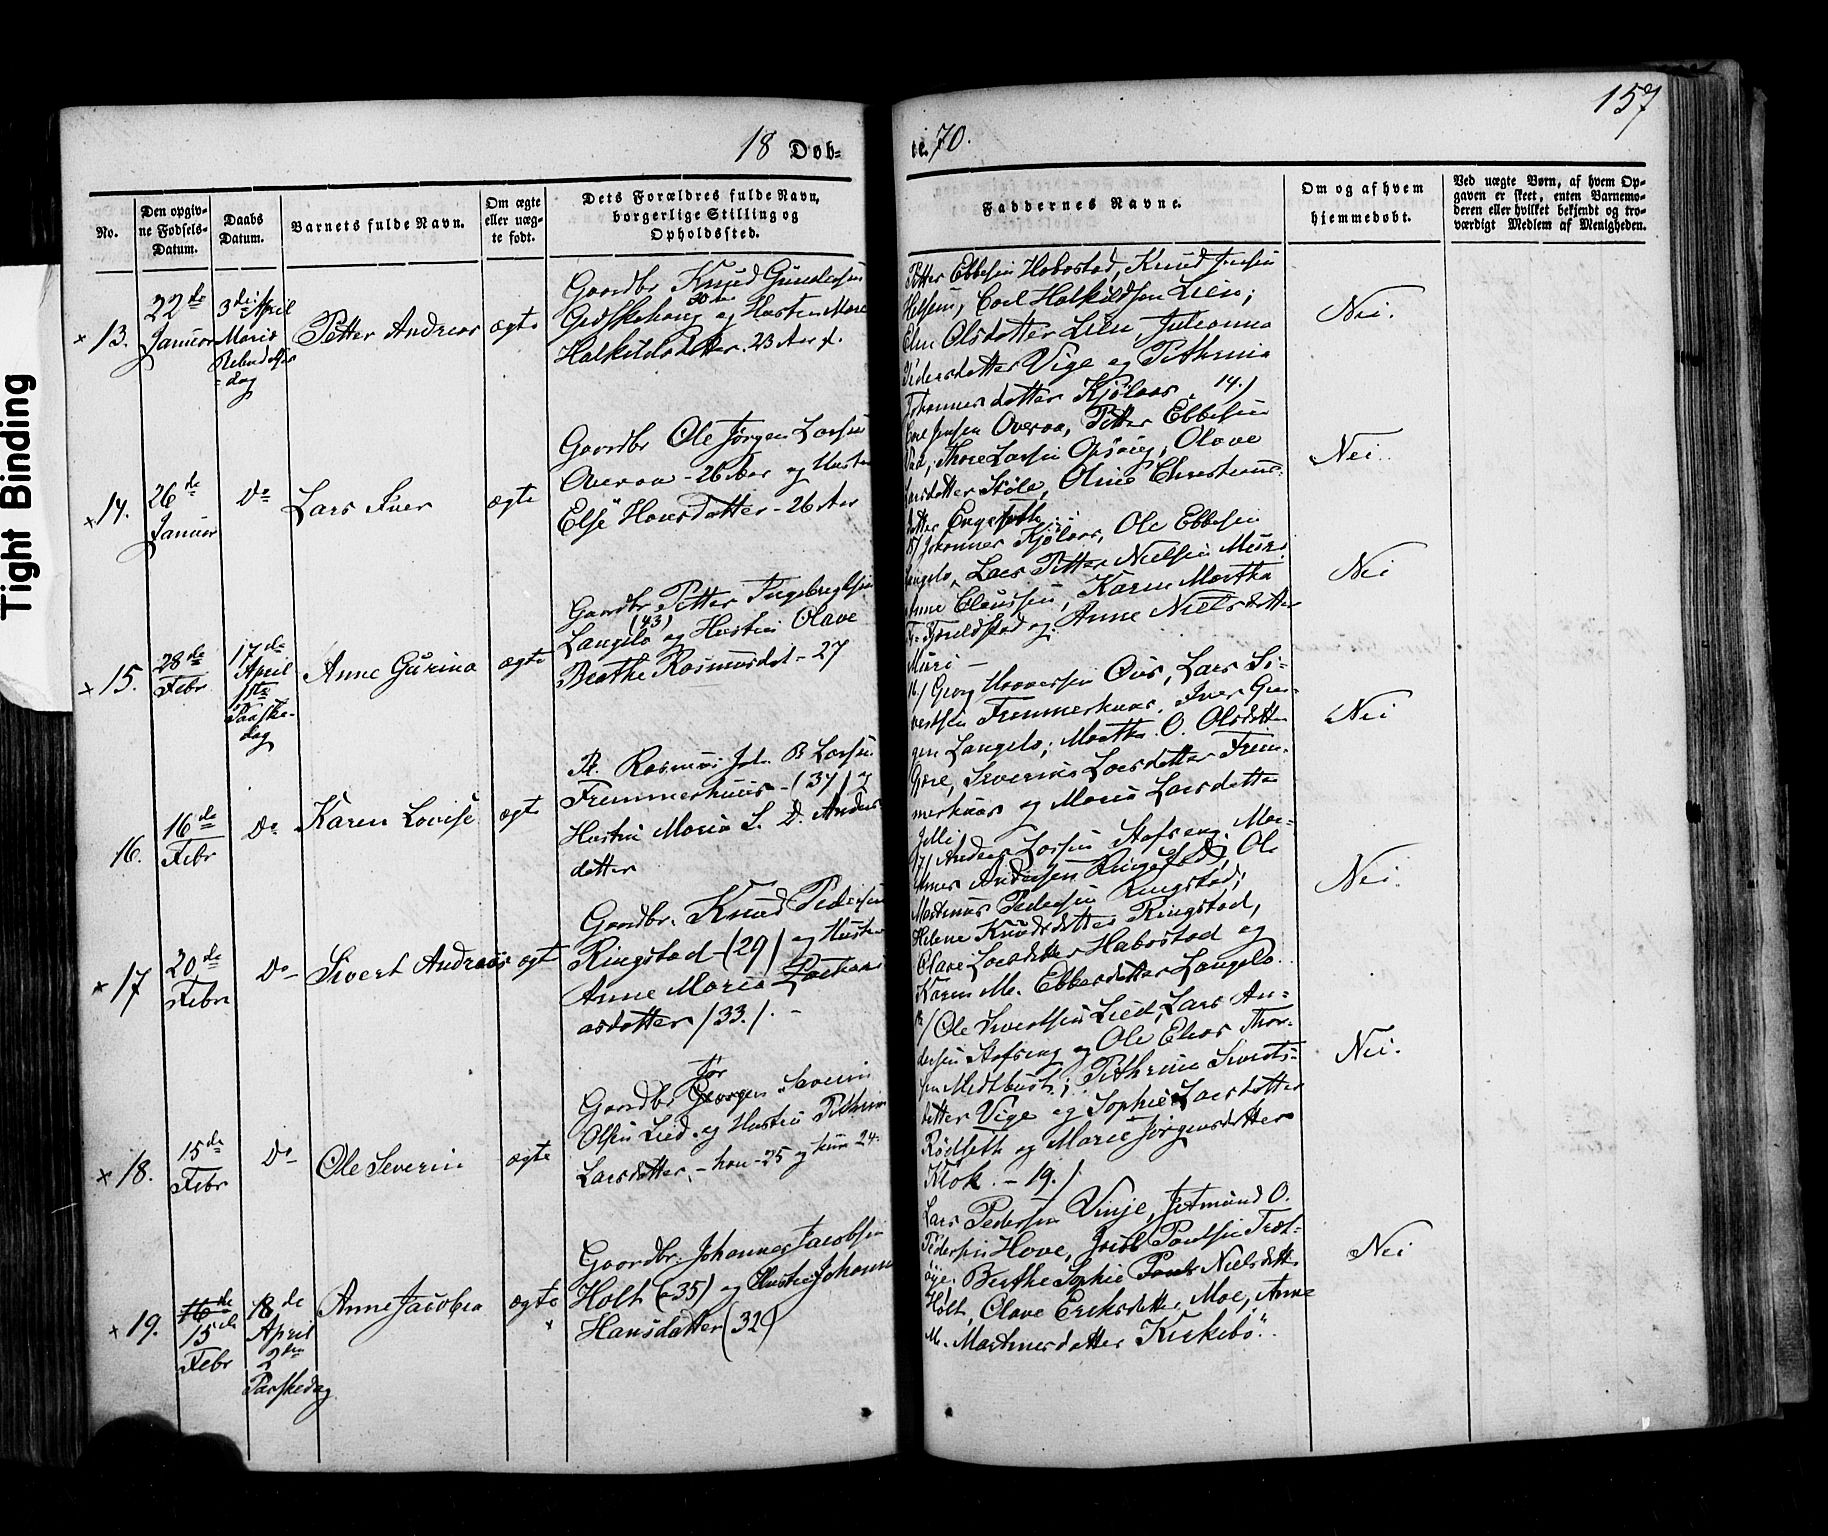 157
18 Døb=
te. 70.
No.
Den opgiv-
ne Fødsels-
Datum.
Daabs
Datum.
Barnets fulde Navn.
Om ægte
eller uæg-
te født.
Dets Forældres fulde Navn,
borgerlige Stilling og
Opholdssted.
Faddernes Navne.
Om og af hvem
hjemmedøbt.
Ved uægte Børn, af hvem Op-
gaven er skeet, enten Barnemo-
deren eller hvilket bekjendt og tro-
værdigt Medlem af Menigheden.
× 13.
22de
Januar
3die April
Mariæ
dag
Petter Andreas
ægte
Gaardbr Knud Gundersen
30 Aar
og Hustru Mare
Halkildsdatter. 23 Aar
Petter Ebbesen Habostad, Knud Jensen
Helsem, Carl Halkildsen Lien;
Elen Olsdatter Lien, Julianna
Pedersdatter Vige og Pethrine
Johannesdatter Kjølaas.
Nei.
× 14.
26de
Januar
Do
Lars Iver
ægte
Gaardbr Ole Jørgen Larsen
Overaa - 26 Aar og Hustru
Else Hansdatter - 26 Aar
14.)
Carl Jensen Overaa, Petter Ebbesen
Thore Larsen Opsvig, Olave
Larsdatter Støle, Oline Christians-
datter Engeseth
Nei.
× 15.
28de
Febr
17de
April
1ste
Paaske-
dag
Anne Gurina
ægte
Gaardbr Petter Ingebregtsen
(43)
Langelo og Hustru Olave
Berthe Rasmusdat - 27
15) Johannes Kjølaas, Ole Ebbesen
Langelo, Lars Petter Nielsen Muri.
Anne Claussen, Karen Martha
Fjeldstad og Anne Nielsdatter
Muri -
Nei
16.
16de
Febr
Do
Karen Lovise
ægte
Rasmus Joh. B Larsen
Fremmerhuus - (37) og
Hustru Maria S. D. Anders
datter
16) Georg Hansen Øvs, Lars Si-
vertsen Fremmerhuus, Iver Gre-
gen Langelo; Martha O. Olsdatter
Gjære, Severine Larsdatter Frem-
merhuus og Maria Larsdatter
Jelli
Nei
× 17
20de
Febr
Do
Sivert Andreas
ægt
Gaardbr. Knud Pedersen
Ringstad (29) og Hustru
Anne Maria Zachari
asdatter (33.). -
17) Anders Larsen Hofseng, Mar-
thinus Andersen Ringstad, Ole
Martinus Pedersen Ringstad;
Helene Knudsdatter Ringstad,
Olave Larsdatter Habostad og
Karen M. Ebbesdatter Langelo.
Nei.
× 18.
15de
Febr
Do
Ole Severin
ægte
Jør
Gaardbr Georgen Severin
Olsen Lied. og Hustru Pethrine
Larsdatter, - han - 25 og hun 24.
18) Ole Sivertsen Lied, Lars An-
dersen Hofseng og Ole Elias Thor-
sen Midtbust; Pethrine Siverts-
datter Vige og Sophie Larsdatter
Rødseth og Marie Jørgensdatter
Klok. - 19.)
Nei.
× 19.
16de
15de
Febr
18de
April
2den
Paaskedag
Anne Jacobea
ægte
×
Gaardbr. Johannes Jacobsen
Holt (35) og Hustru Johanne
Hansdatter (32)
Lars Pedersen Vinje, Jetmund O.
Pedersen Hove, Jacob Paulsen Træt-
øye. Berthe Sophie Pauls Nielsdatt.
Holt, Olave Eriksdatter Moe, Anne
M. Martinusdatter Kirkebø.
Nei
Tight Binding